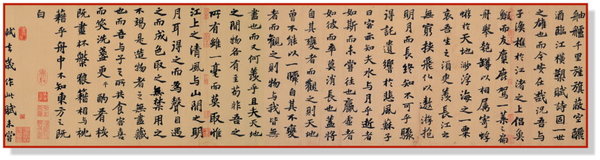 舳艫千里旌旗蔽空釃
酒臨江橫槊賦詩固一世
之雄也而今安在哉況吾與
子漁樵於江渚之上侶魚
鰕而友麋鹿駕一葉之扁
舟舉匏尊以相屬寄蜉
蝣於天地渺浮海之一粟
哀吾生之須臾羨長江之
無窮挾飛仙以遨遊抱
明月而長終知不可乎驟
得託遺響於悲風蘇子
曰客亦知夫水與月乎逝者
如斯而未嘗往也贏虛者
如彼而卒莫消長也蓋將
自其變者而觀之則天地
曾不能以一瞬自其不變
者而觀之則物與我皆無
盡也而又何羨乎且夫天地
之間物各有主苟非吾之
所有雖一毫而莫取惟
江上之清風與山間之明
月耳得之而為聲目遇
之而成色取之無禁用之
不竭是造物者之無盡藏
也而吾與子之所共食客喜
而笑洗盞更酌肴核既盡
杯盤狼藉相與枕
藉乎舟中不知東方之既
白
軾去歲作此賦未嘗